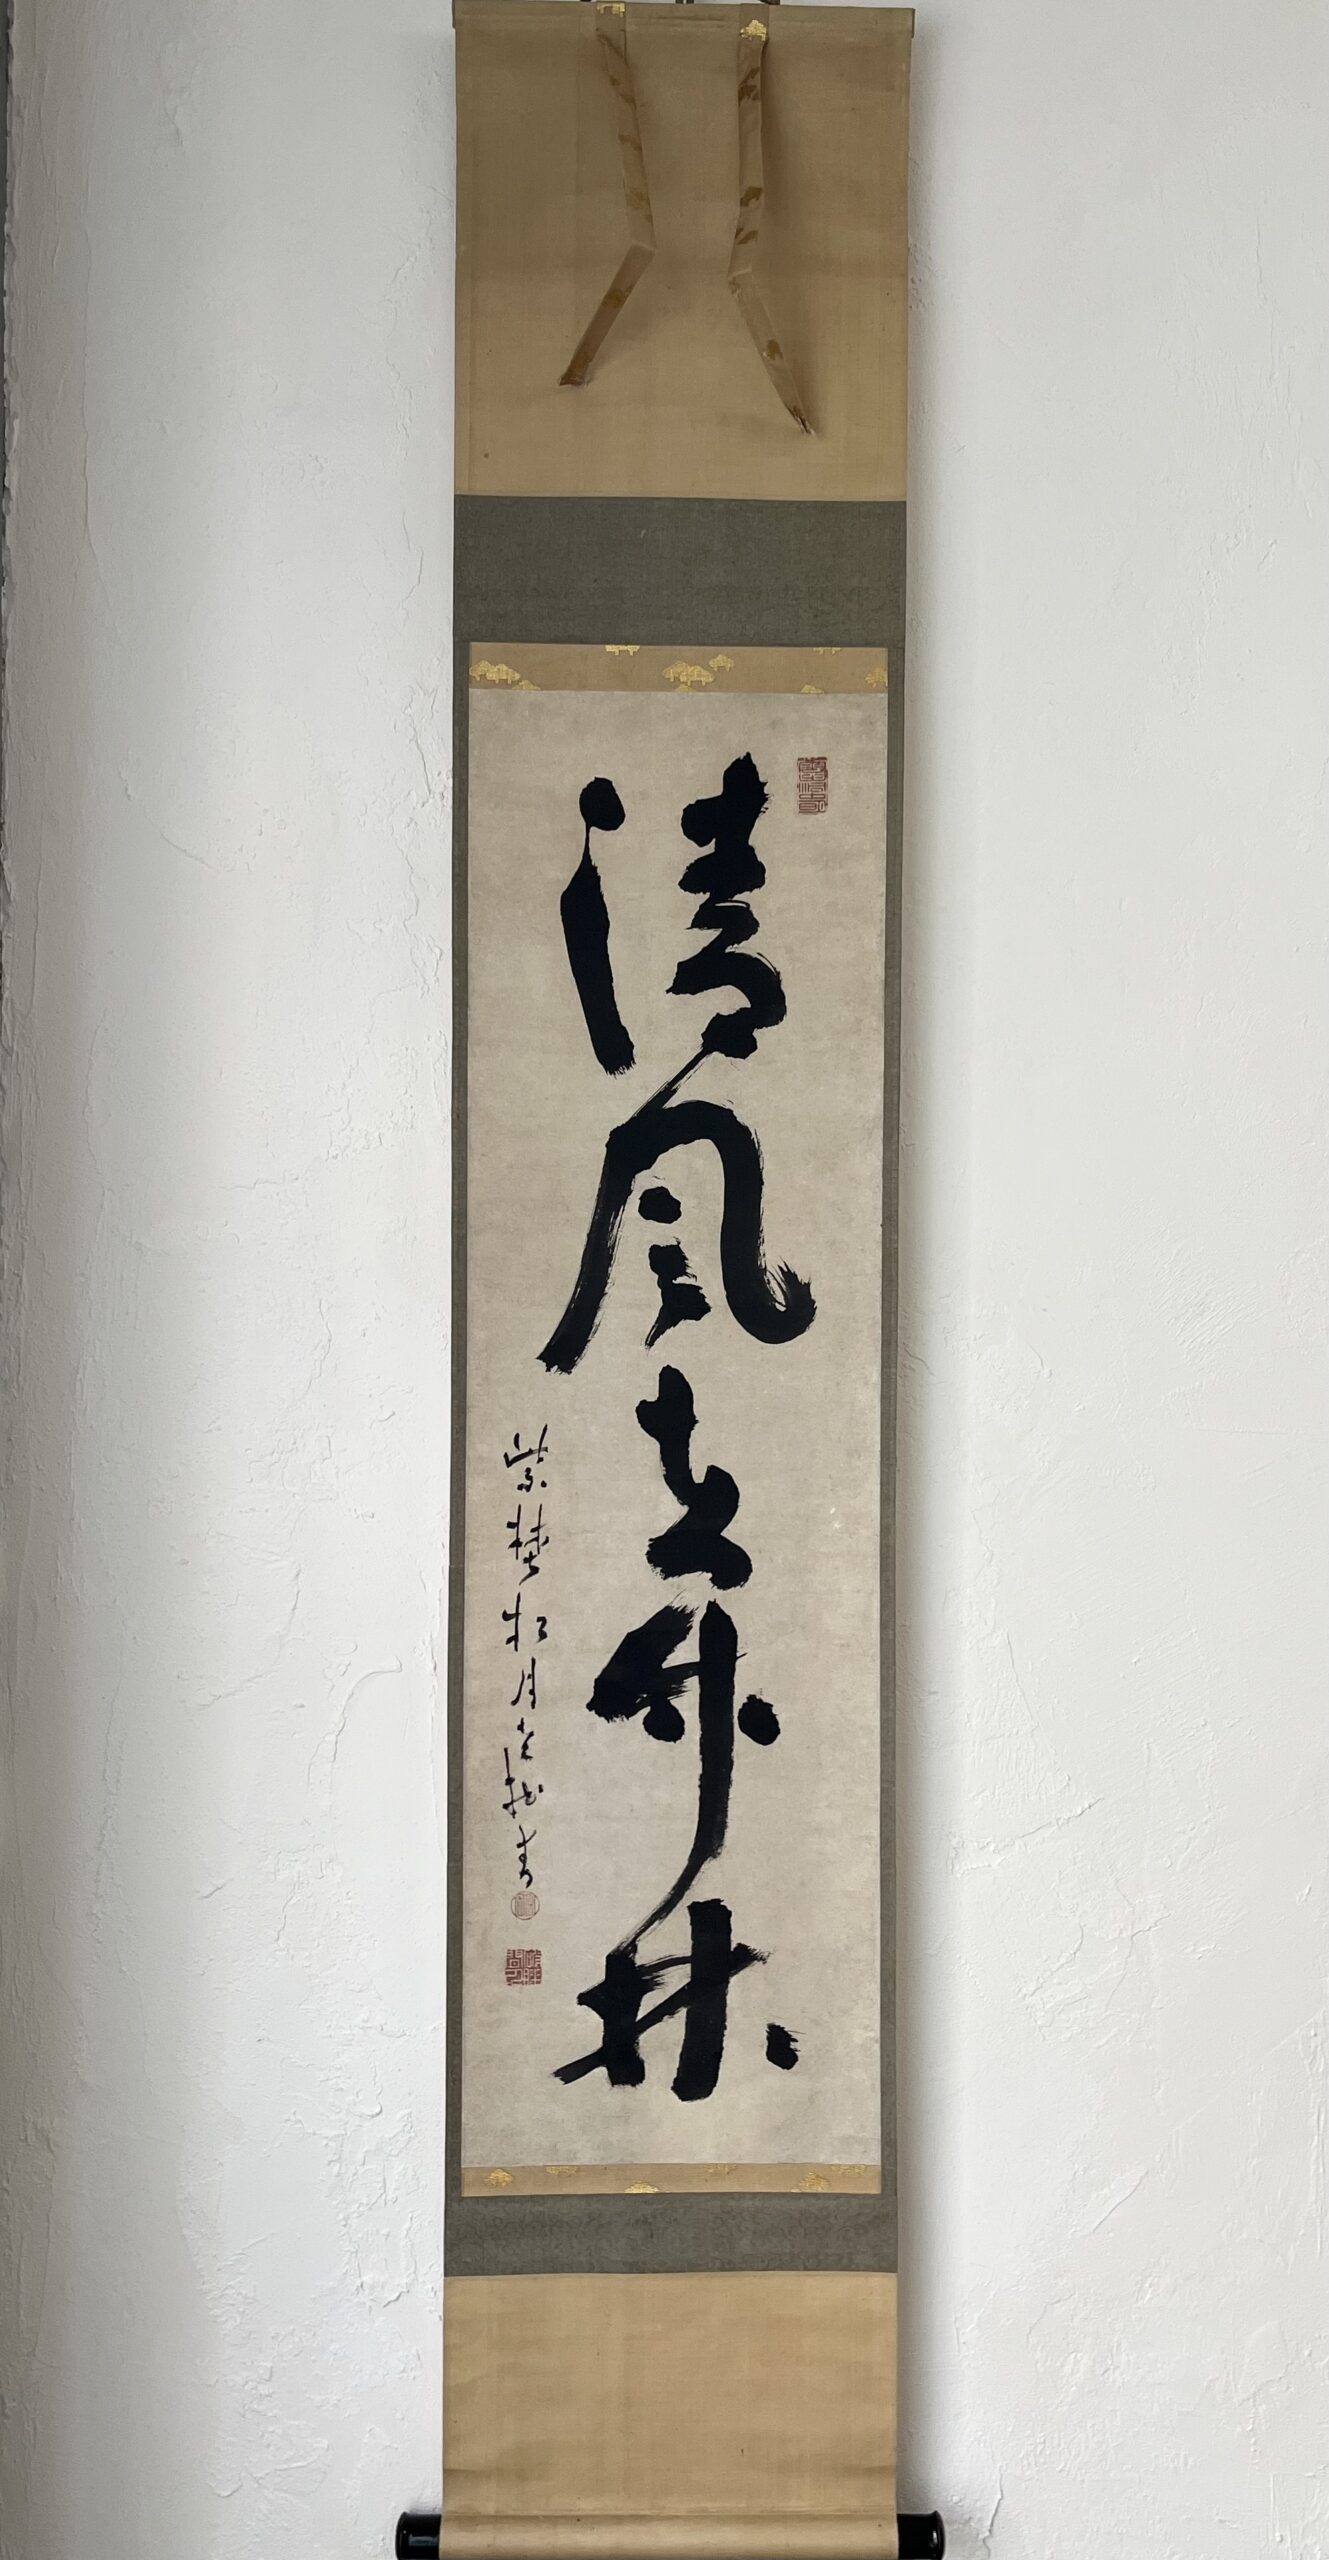 清風在竹林
紫埜松月老拙書